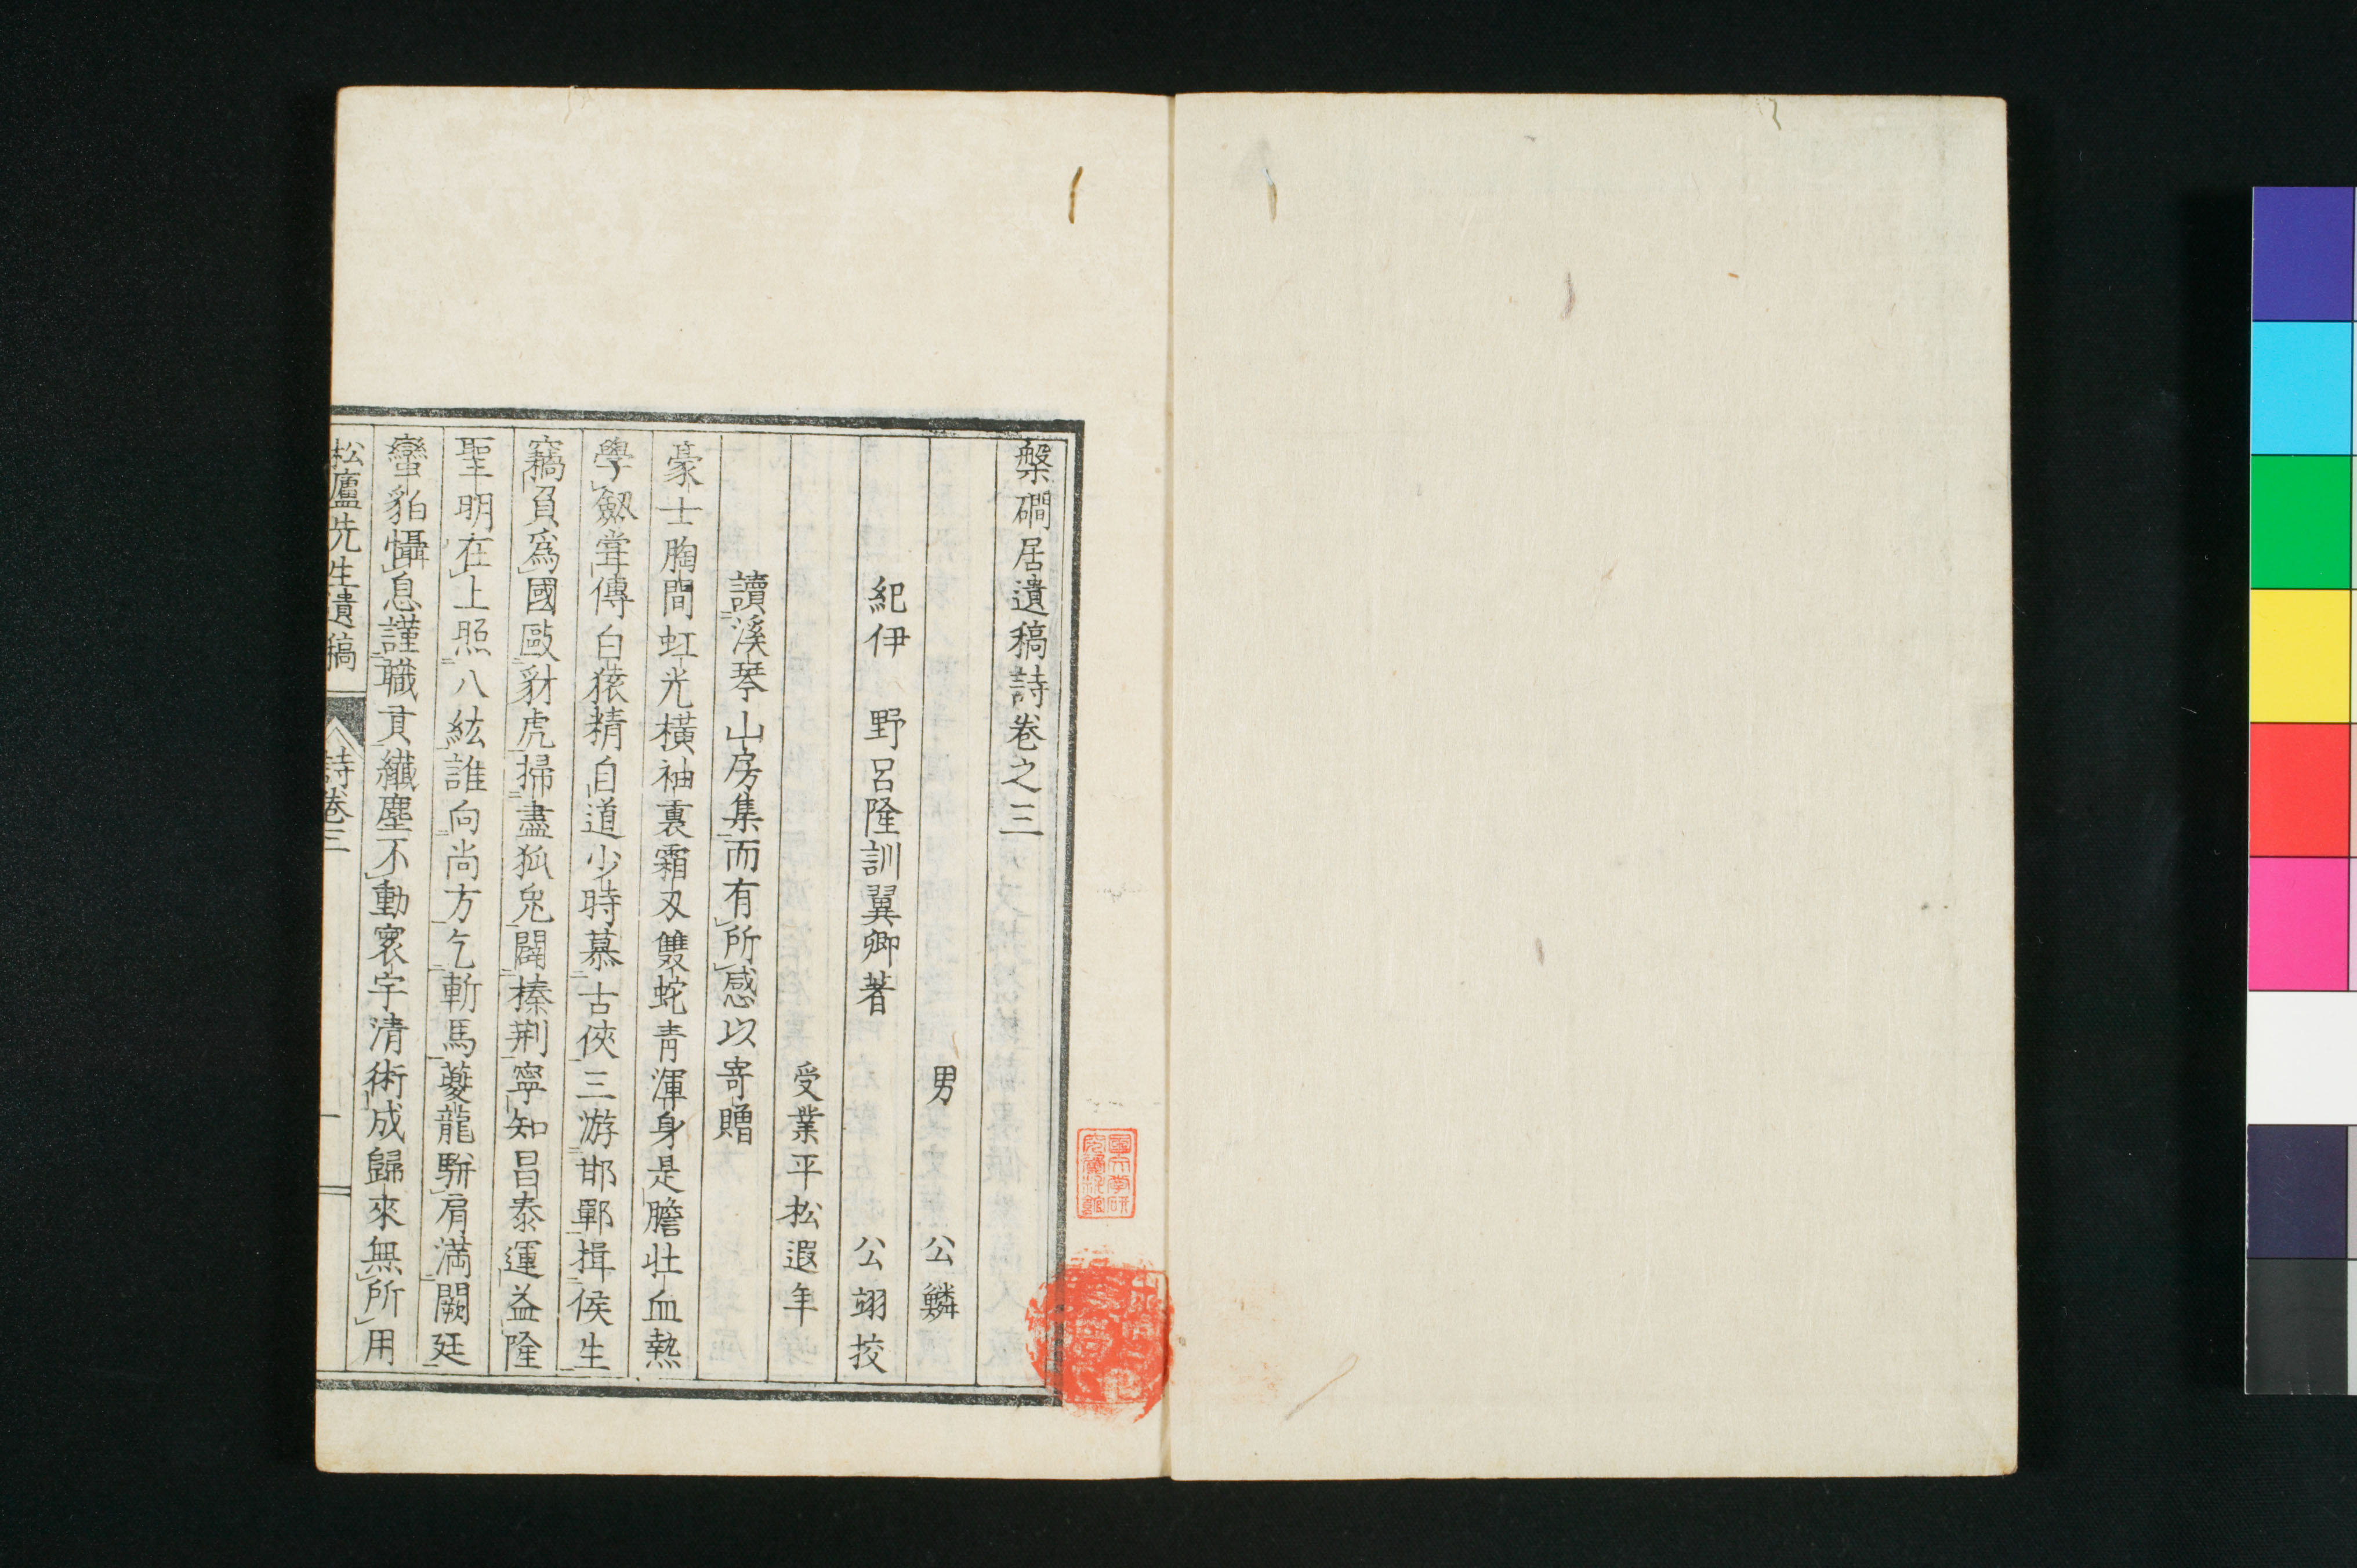 槃磵居遺稿詩卷之三
男　公鱗
紀伊　野呂隆訓翼卿著　公翊挍
受業平松遐年
讀溪琴山房集而有所感以寄贈
豪士胸間虹光橫袖裏霜刃雙蛇青渾身是膽壯血熱
學劔甞傳白猿精自道少時慕古俠三游邯鄲揖侯生
竊負爲國毆豺虎掃盡狐兎闢榛荆寧知昌泰運益隆
聖明在上照八紘誰向尚方乞斬馬夔龍駢肩満闕廷
蠻貊懾息謹職貢纎塵不動寰宇清術成歸來無所用
松廬先生遺稿　詩卷三　一
國文学研
究資料館